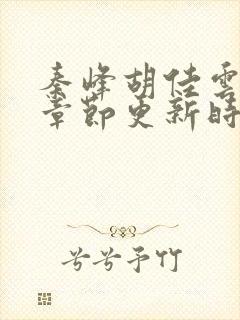 秦峰胡佳雲
章節更新時
兮兮予竹